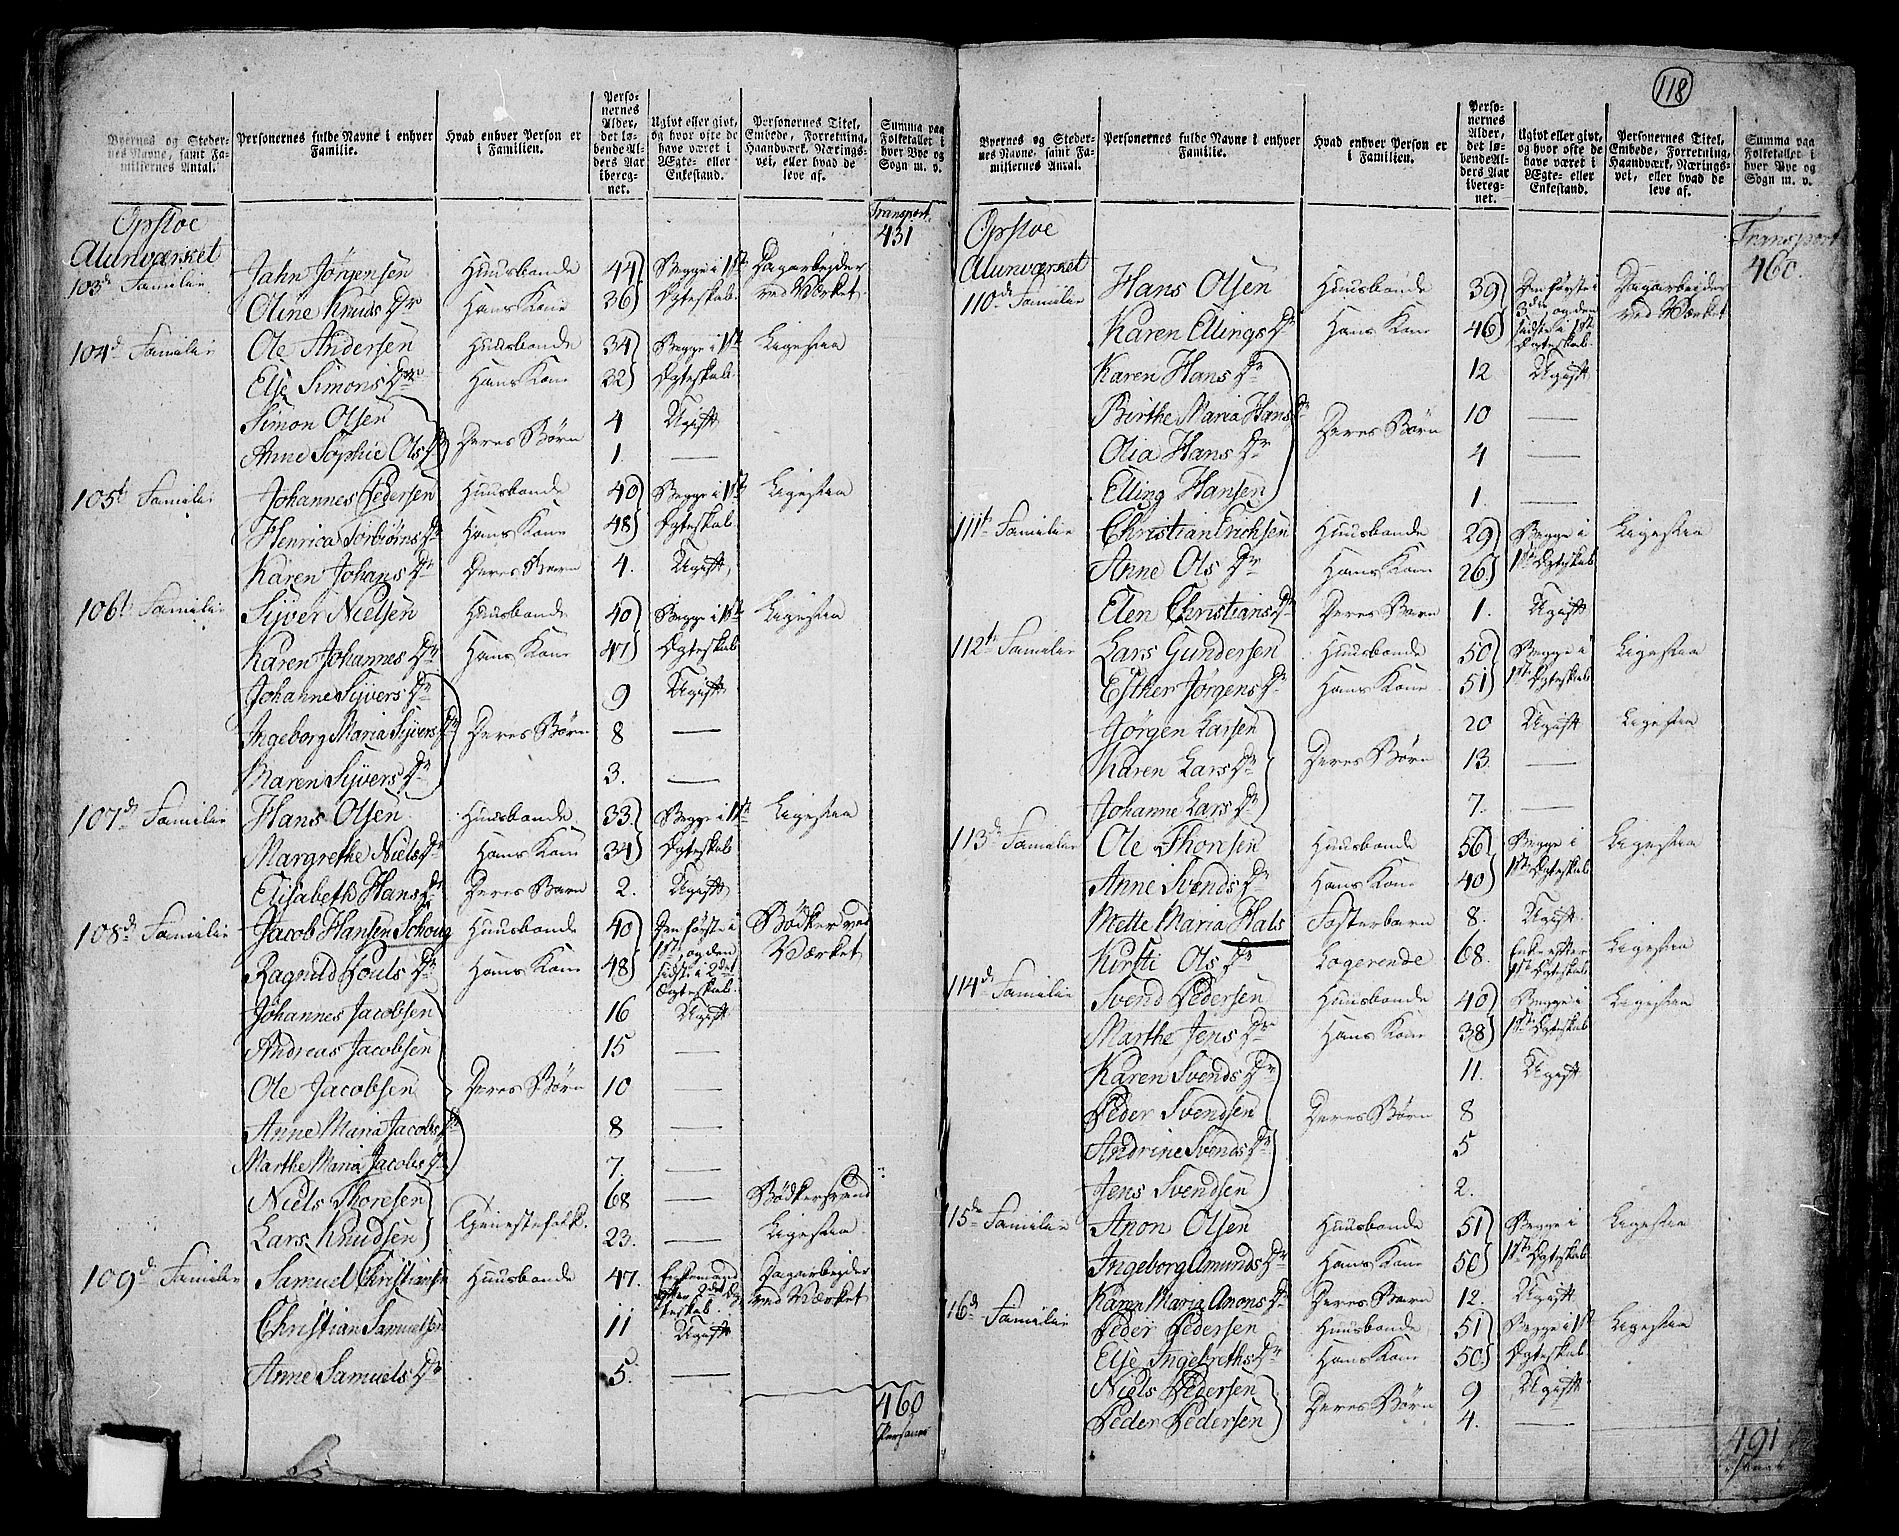 118
Byernes og Stedernes Navne, samt Familiernes Antal.
Personernes fulde Navne i enhver Familie.
Hvad enhver Person er i Familien.
Personernes Alder, det løbende Alders Aar iberegnet.
Ugivt eller givt, og hvor ofte de have været i Ægte- eller Enkestand.
Personernes Titel, Embede, Forretning, Haandværk, Næringsvei, eller hvad de leve af.
Summa paa Folketallet i hver Bye og Sogn m. v.
Opsloe Transport
Alunværket 431
103d Familie Jahn Jørgensen Huusbonde 44 Begge i 1ste Dagarbeider
Oline Knuds Dr Hans Kone 36 Ægteskab. ved Værket
104d Familie Ole Andersen Huusbonde 34 Begge i 1ste Ligesaa
Else Simons Dr Hans Kone 32 Ægteskab.
Simon Olsen 4 Ugift
Anne Sophie Ols Dr Deres Børn 1 —
105t Familie Johannes Pedersen Huusbonde 40 Begge i 1ste Ligesaa
Henrica Torbiørns Dr Hans Kone 48 Ægteskab.
Karen Johans Dr Deres Barn 4. Ugift
106t Familie Syver Nielsen Huusbonde 40 Begge i 1ste Ligesaa
Karen Johannes Dr Hans Kone 47 Ægteskab
Johanne Syvers Dr 9 Ugift
Ingeborg Maria Syvers Dr Deres Børn 8 —
Maren Syvers Dr 3. —
107d Familie Hans Olsen Huusbonde 33 Begge i 1ste Ligesaa
Margrethe Niels Dr Hans Kone 34 Ægteskab
Elisabeth Hans Dr Deres Barn 2. Ugift
108d Familie Jacob Hansen Schoug Huusbonde 40 Den første i 1ste, og den Bødker ved
Ragnild Pouls Dr Hans Kone 48 sidste i 2det Ægteskab. Værket
Johannes Jacobsen 16 Ugift
Andreas Jacobsen 15 —
Ole Jacobsen Deres Børn 10 —
Anne Maria Jacobs Dr 8 —
Marthe Maria Jacobs Dr 7. —
Niels Thoresen 68 — Bødkersvend
Lars Knudsen Tjenestefolk. 23. — Ligesaa
109d Familie Samuel Christiansen Huusbonde 47. Enkemand efter 2det Ægteskab. Dagarbeider ved Værket
Christian Samuelsen 11 Ugift
Anne Samuels Dr 5. —
460
Personer
Byernes og Stedernes Navne, samt Familiernes Antal.
Personernes fulde Navne i enhver Familie.
Hvad enhver Person er i Familien.
Personernes Alder, det løbende Alders Aar iberegnet.
Ugivt eller givt, og hvor ofte de have været i Ægte- eller Enkestand.
Personernes Titel, Embede, Forretning, Haandværk, Næringsvei, eller hvad de leve af.
Summa paa Folketallet i hver Bye og Sogn m. v.
Opsloe Transport
Alunværket 460.
110de Familie Hans Olsen Huusbonde 39 Den første i 3die, og den Dagarbeider
Karen Ellings Dr Hans Kone 46 sidste i 1ste Ægteskab. ved Værket
Karen Hans Dr 12 Ugift
Birthe Maria Hans Dr 10 —
Olia Hans Dr Deres Børn 4 —
Elling Hansen 1. —
111te Familie Christian Erichsen Huusbonde 29 Begge i Ligesaa
Anne Ols Dr Hans Kone 26. 1ste Ægteskab
Elen Christians Dr Deres Barn 1. Ugift
112te Familie Lars Gundersen Huusbonde 50 Begge i Ligesaa
Esther Jørgens Dr Hans Kone 51 1ste Ægteskab
Jørgen Larsen 20 Ugift Ligesaa
Karen Lars Dr Deres Børn 13. —
Johanne Lars Dr 7. —
113de Familie Ole Thonsen Huusbonde 56 Begge i Ligesaa
Anne Svends Dr Hans Kone 40 1ste Ægteskab
Mette Maria Hals Fosterbarn 8. Ugift
Kirsti Ols Dr Logerende 68. Enke efter 1ste Ægteskab Ligesaa
114de Familie Svend Pedersen Huusbonde 40 Begge i Ligesaa
Marthe Jens Dr Hans Kone 38 1ste Ægteskab
Karen Svends Dr 11. Ugift
Peder Svendsen Deres Børn 8
Andrine Svends Dr 5
Jens Svendsen 2.
115de Familie Anon Olsen Huusbonde 51 Begge i Ligesaa
Ingeborg Amunds Dr Hans Kone 50 1ste Ægteskab
Karen Maria Anons Dr Deres Barn 12. Ugift
116de Familie Peder Pedersen Huusbonde 51 Begge i 1ste Ligesaa
Else Ingebreths Dr Hans Kone 50. Ægteskab.
Niels Pedersen 9 Ugift
Peder Pedersen Deres Børn 4. —
491